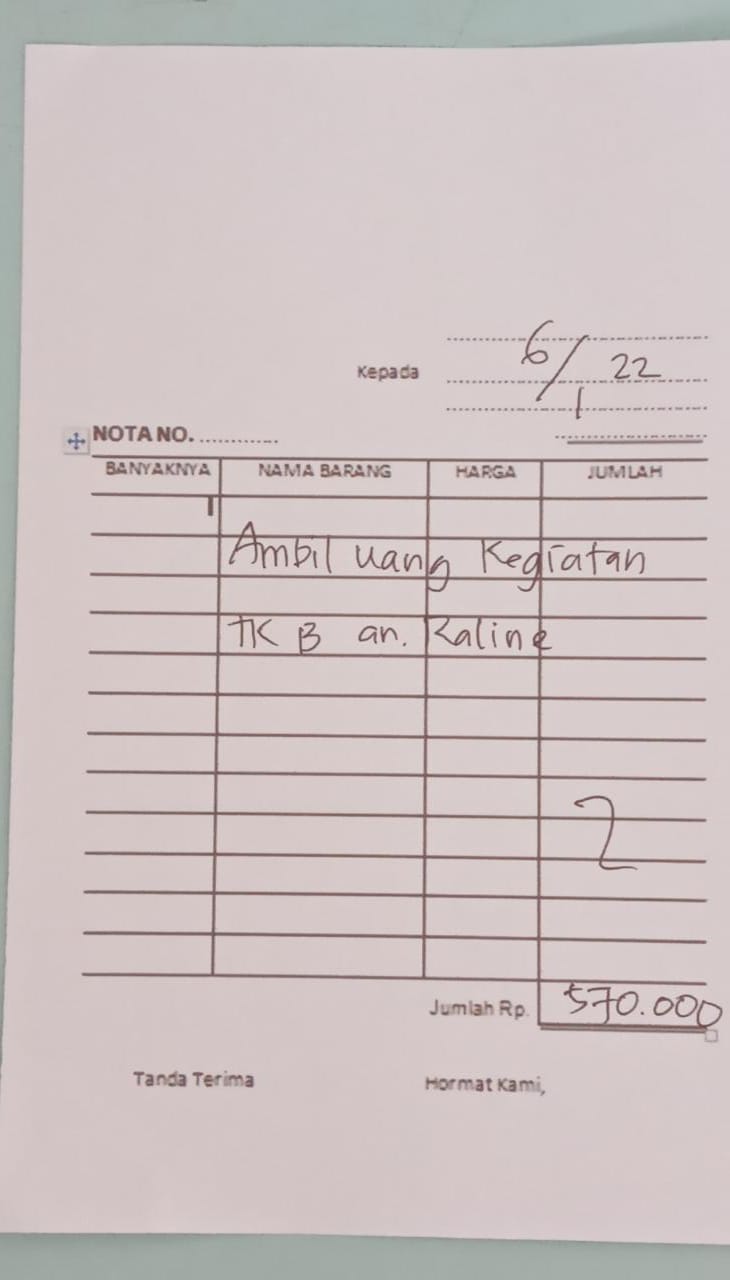 6/1 22
Kepada
NOTA NO. ............
BANYAKNYA NAMA BARANG HARGA JUMLAH
Ambil uang Kegiatan
TK B an. Kaline
2
Jumlah Rp. 570.000
Tanda Terima Hormat Kami,